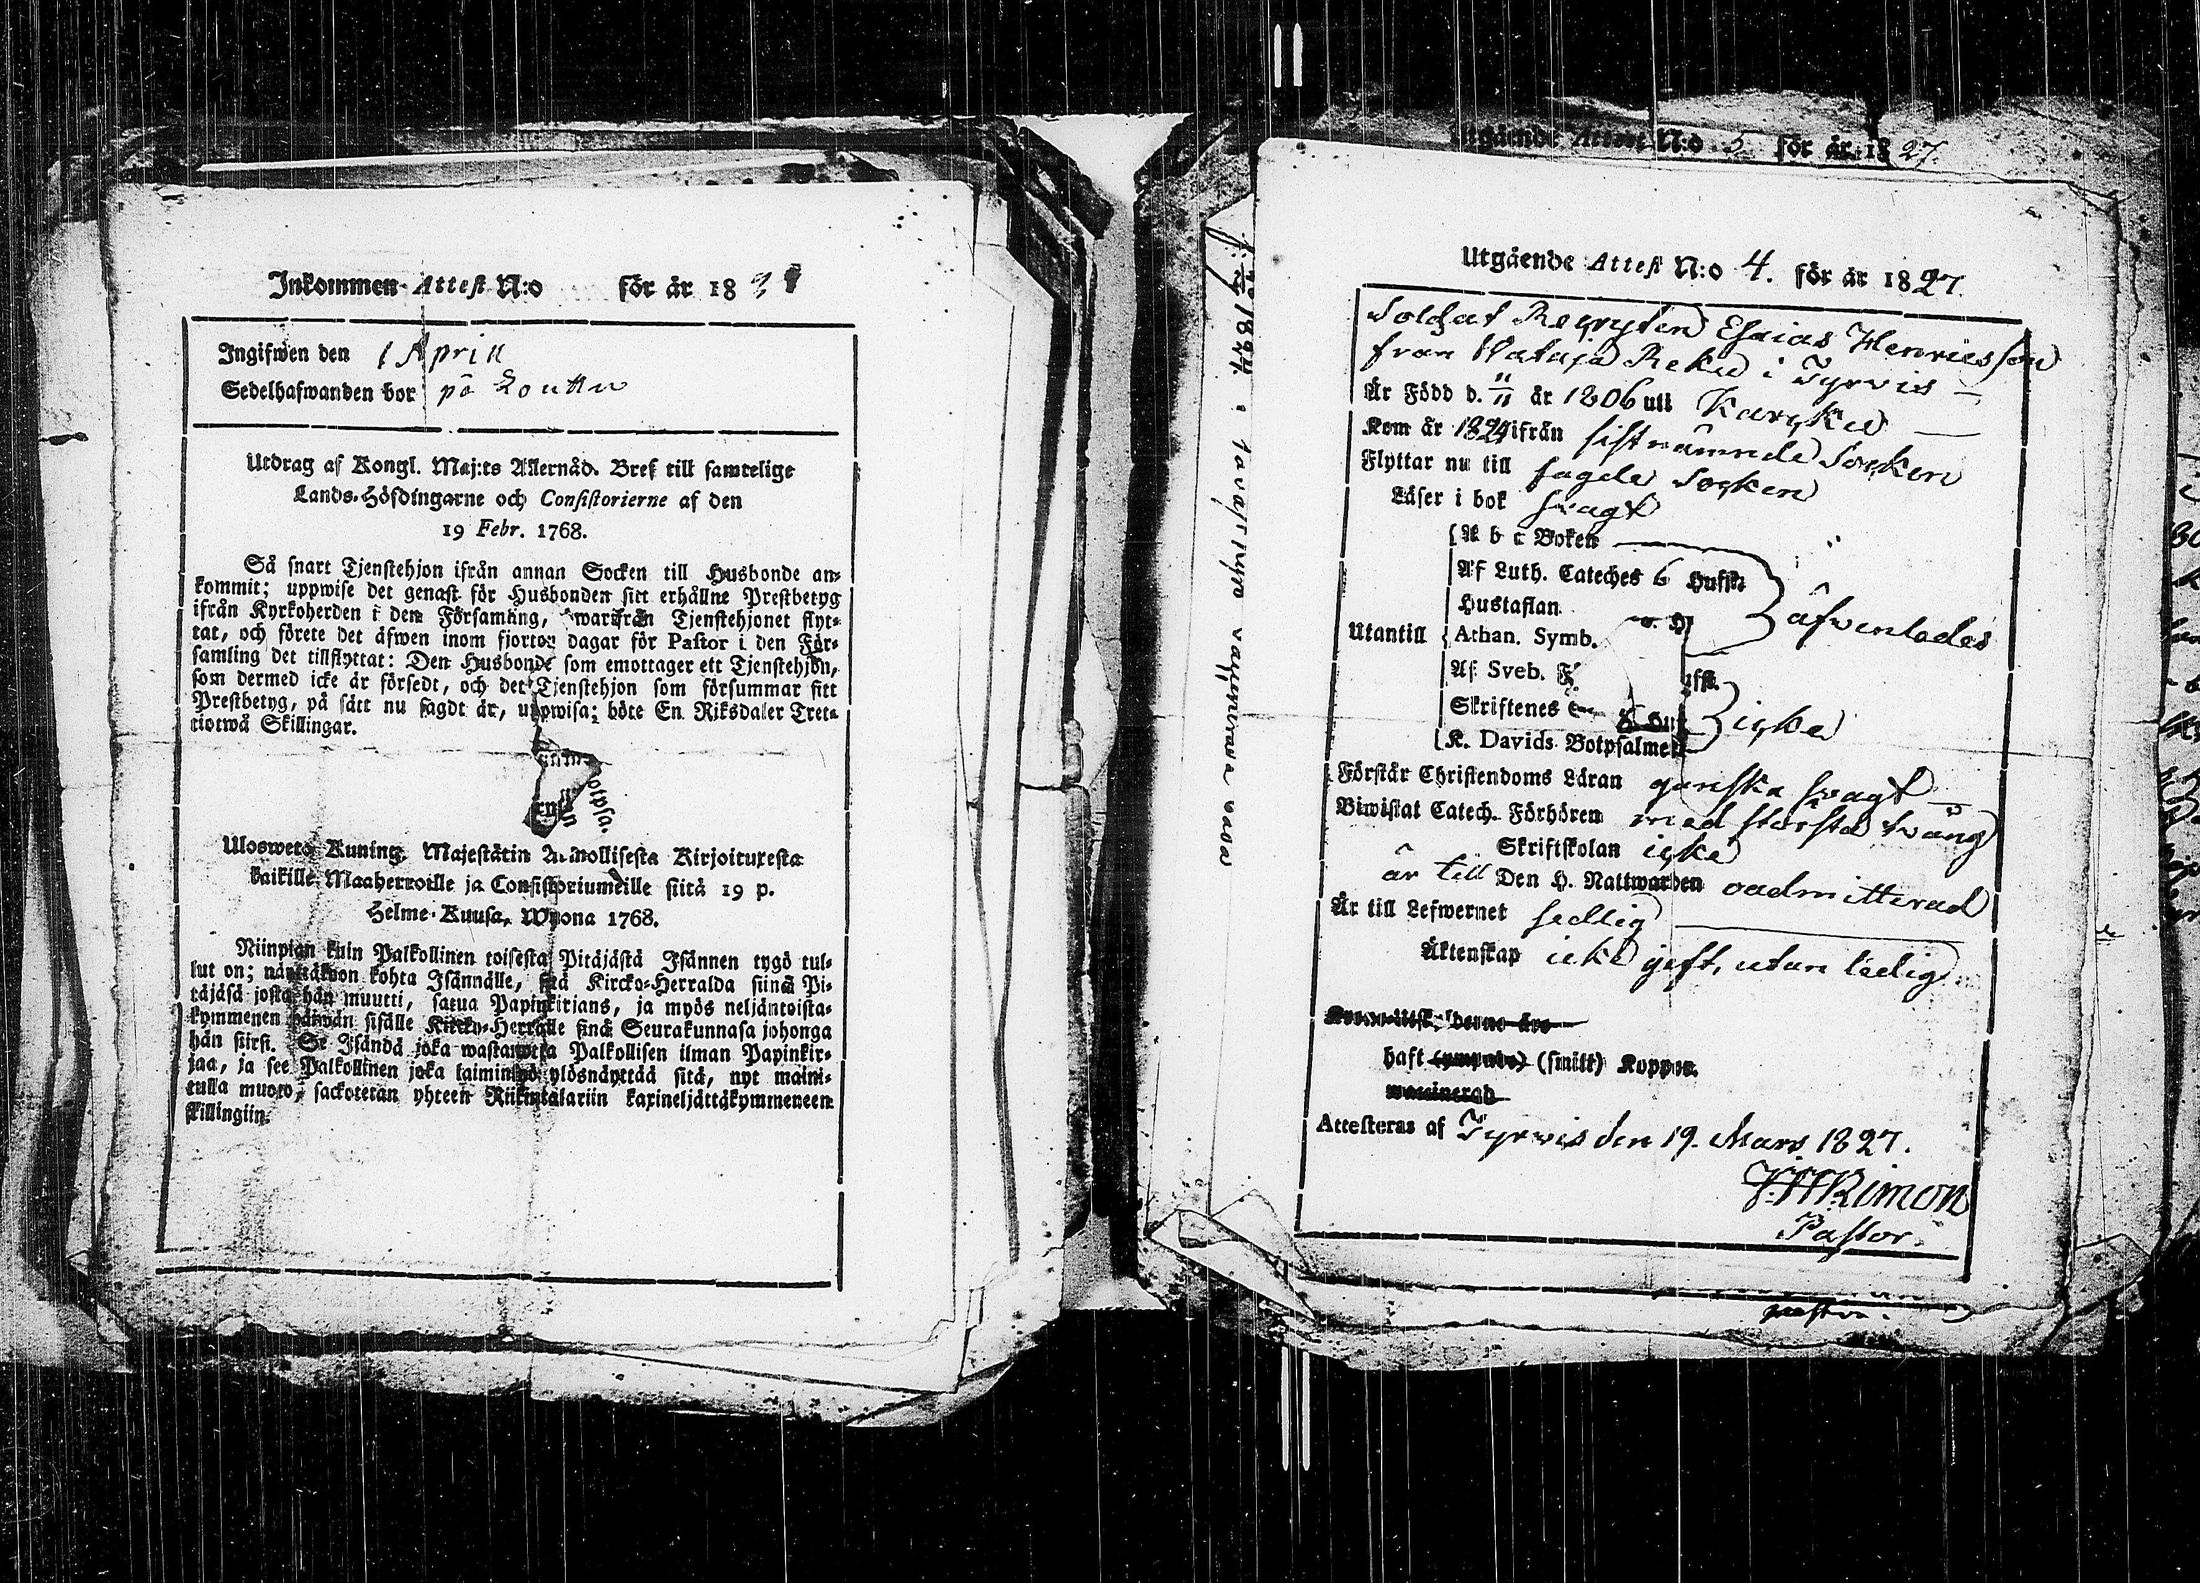 Inkommen Attest N:o för år 18
Ingifwen den 1 Aprill
Sedelhafwanden bor på
Utdrag af Kongl. Maj:ts Allernåd. Bref till samtelige
Lands-Höfdingarne och Consistorierne af den
19 Febr. 1768.
Så snart Tjenstehjon ifrån annan Socken till Husbonde an-
kommit; uppwise det genast för Husbonden sitt erhållne Prestbetyg
ifrån Kyrkoherden i den Församling, hwarifrån Tjenstehjonet flyt-
tat, och förete det äfwen inom fjorton dagar för Pastor i den För-
samling det tillflyttat: Den Husbonde som emottager ett Tjenstehjon,
som dermed icke är försedt, och det Tjenstehjon som försummar sitt
Prestbetyg, på sätt nu sagdt är, uppwisa; böte En Riksdaler Tret-
tiotwå Skillingar.
Uloswetö Kuning. Majestätin Armollisesta Kirjoituxesta
kaikille Maaherroille ja Consistoriumeille siitä 19 p.
Helme-Kuusa, Wuona 1768.
Niinpian kuin Palkollinen toisesta Pitäjästä Isännen tygö tul-
lut on; näyttäköön kohta Isännälle, sitä Kircko-Herralda siinä Pi-
täjäsä josta hän muutti, saatua Papinkirjans, ja myös neljäntoista-
kymmenen päiwän sisälle Kircko-Herralle siinä Seurakunnasa johonga
hän siirsi. Se Isändä joka wastanotta Palkollisen ilman Papinkir-
jaa, ja see Palkollinen joka laiminlyö ylösnäyttää sitä, nyt maini-
tulla muoto, sackotetan yhteen Riikintalariin kaxineljättäkymmeneen
skillingiin.
Utgående Attest N:o 5 för år 1827.
Utgående Attest N:o 4. för år 1827.
Soldat Recryten Esaias Henricsson
från Wataja Reku i Tyrvis
Är Född d. 11/11 år 1806 uti Karcku
Kom år 1824 ifrån sistnämnde Socken
Flyttar nu till sagde Socken
Läser i bok swagt
A b c Boken
Af Luth. Cateches 6 Hufst.
Hustaflan
äfwenledes
Utantill
Athan. Symb.
Af Sveb.
Skriftenes
icke
K. Davids Botpsalmer
Förstår Christendoms Läran ganska swagt
Biwistat Catech. Förhören med största twång
Skriftskolan icke
är till Den H. Nattwarden oadmitterad
Är till Lefwernet sedlig
Äktenskap icke gift, utan ledig
haft (ympade) (smitt) Koppor.
waccinerad
Attesteras af Tyrwis den 19. Mars 1827.
Pastor.